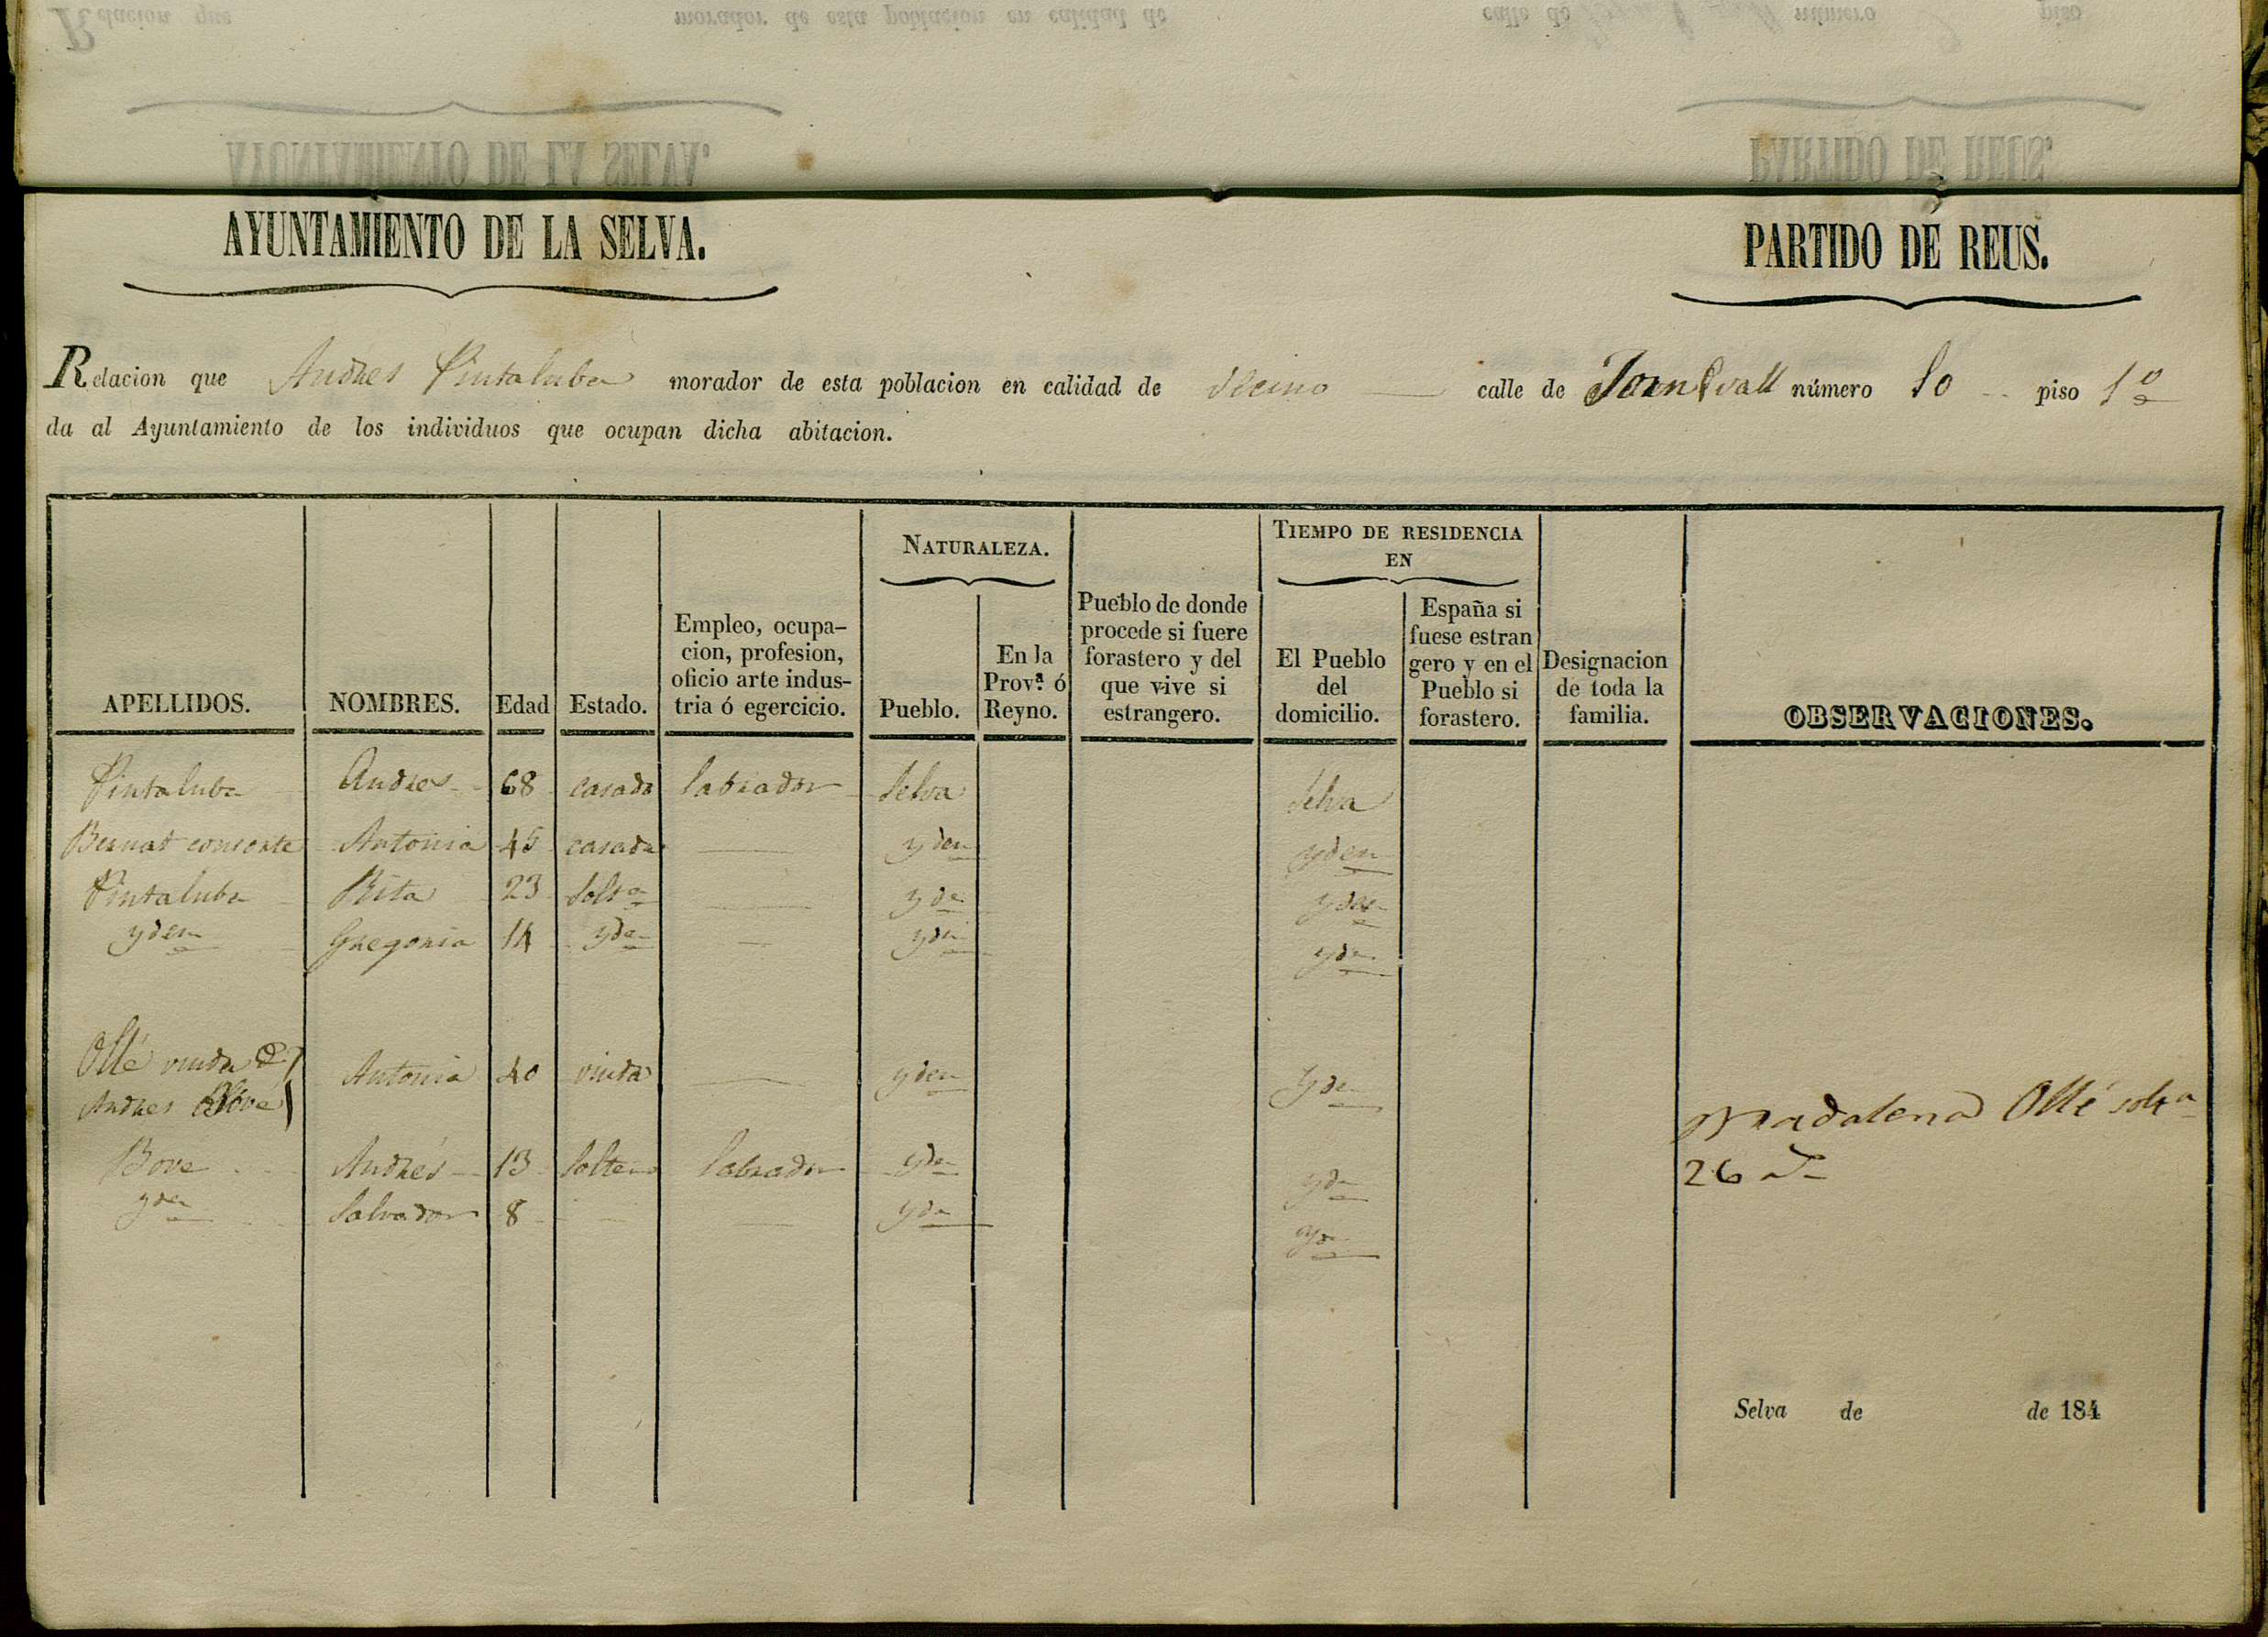 AYUNTAMIENTO DE LA SELVA.
PARTIDO DE REUS.
Relacion que Andres Pintaluba morador de esta poblacion en calidad de Vecino calle de número 10 piso 1º
da al Ayuntamiento de los individuos que ocupan dicha abitacion.
APELLIDOS. NOMBRES. Edad Estado. Empleo, ocupa-cion, profesion, oficio arte indus-tria ó egercicio. NATURALEZA. Pueblo. En la Prov.ª ó Reyno. Pueblo de donde procede si fuere forastero y del que vive si estrangero. TIEMPO DE RESIDENCIA EN El Pueblo del domicilio. España si fuese estran gero y en el Pueblo si forastero. Designacion de toda la familia. OBSERVACIONES.
Pintaluba Andres 68 casado labrador Selva Selva
Bernat consorte Antonia 45 casada yden yden
Pintaluba Rita 23 Solt.ª yden yden
yden Gregoria 14 yden yden yden
Ollé viuda de
Andres Bove Antonia 40 viuda yden yden
Bove Andrés 13 soltero labrador yden yden
yden Salvador 8 yden yden
Madalena Ollé solt.ª
26
Selva de de 184